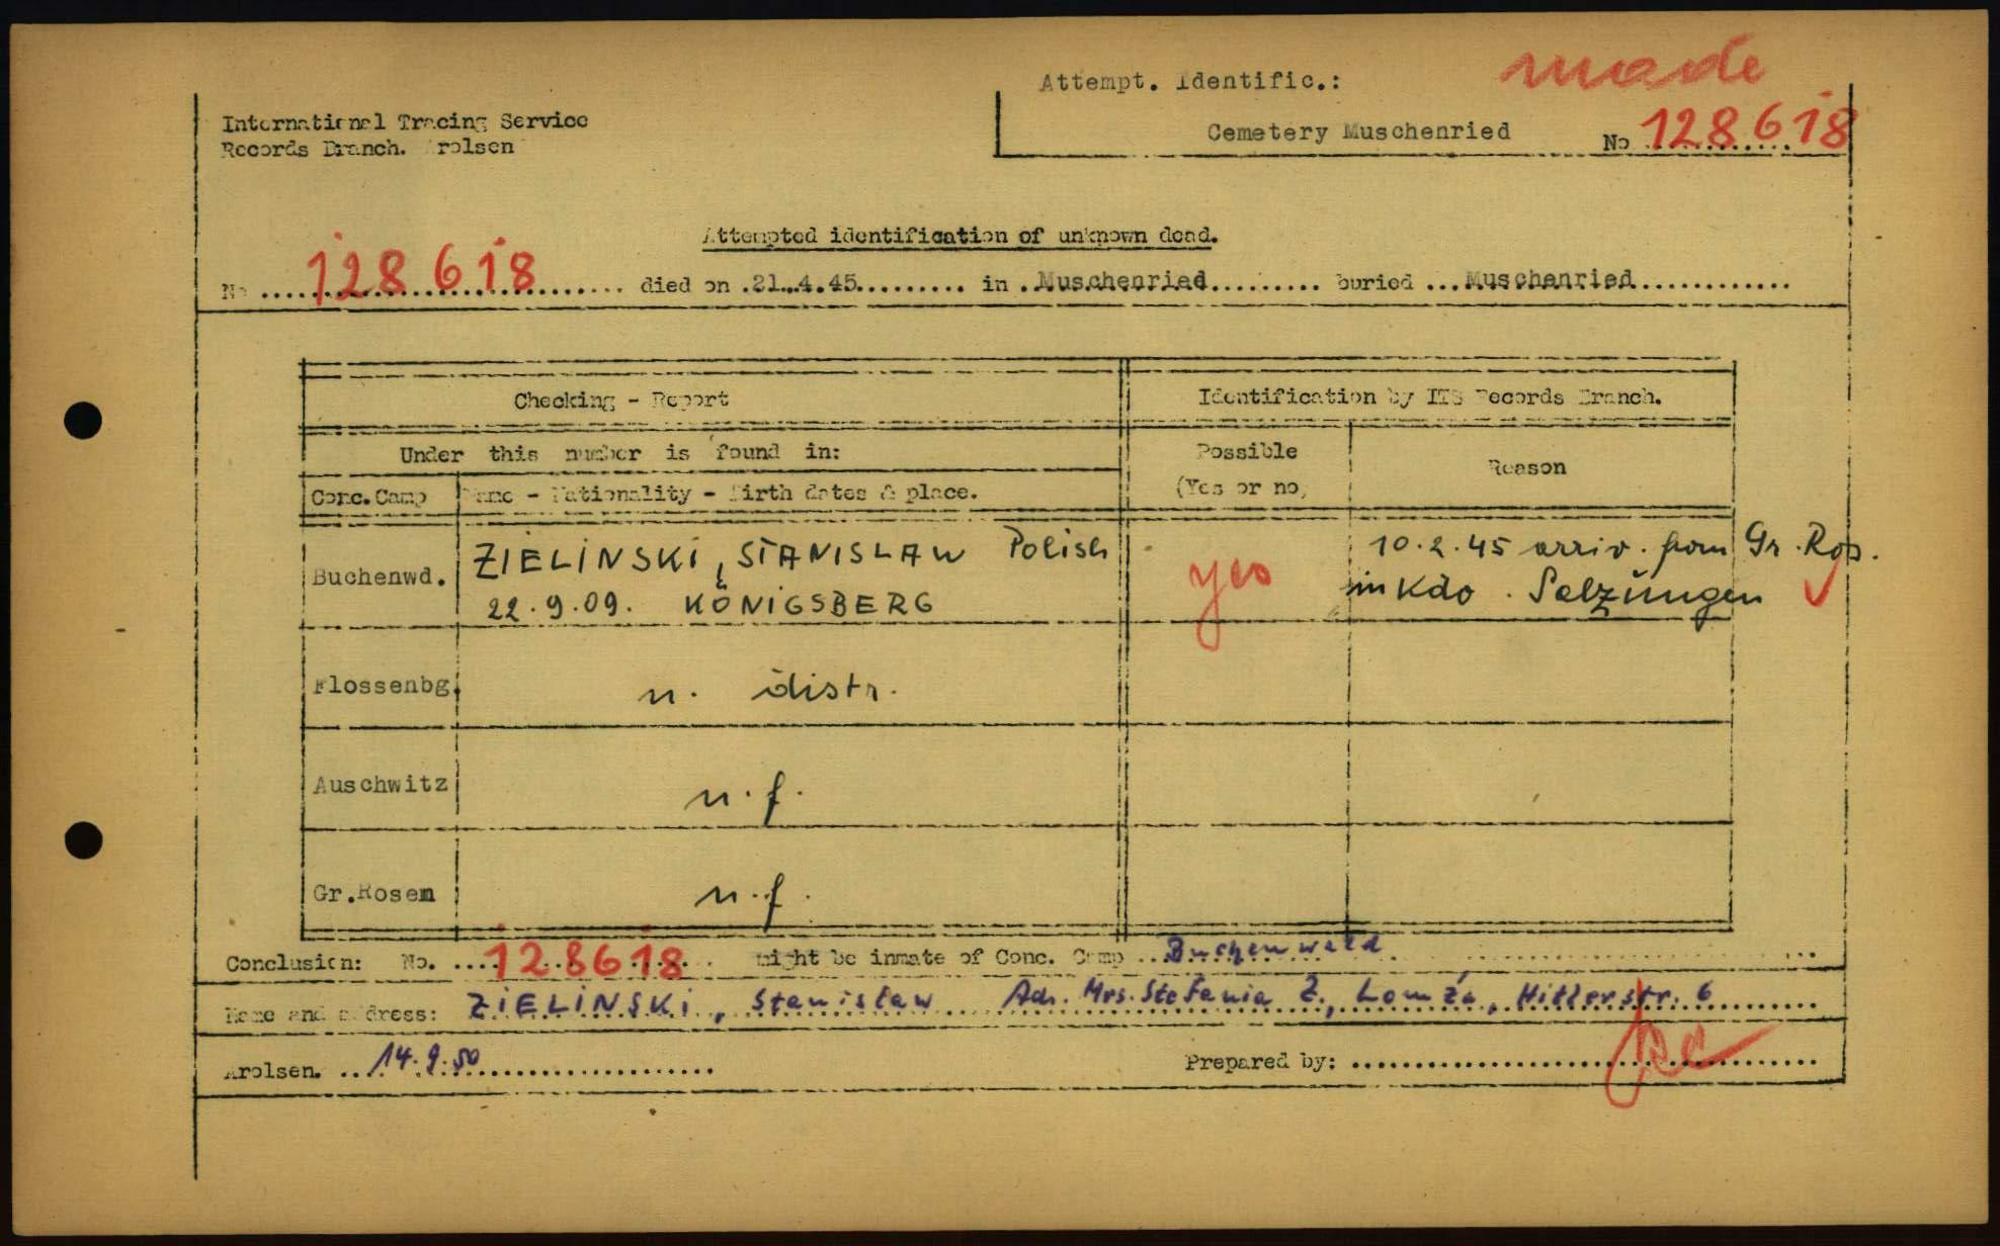 Attempt. Identific.: made
International Tracing Service
Records Branch. Arolsen
Cemetery Muschenried No 128618
Attempted identification of unknown dead.
No 128618 died on 21.4.45 in Muschenried buried Muschenried
Checking - Report
Identification by ITS Records Branch.
Under this number is found in:
Possible
(Yes or no)
Reason
Conc.Camp Name - Nationality - Birth dates & place.
Buchenwd. ZIELINSKI, STANISLAW Polish
22.9.09. KÖNIGSBERG
yes
10.2.45 arriv. from Gr. Ros.
in Kdo. Salzungen
Flossenbg. n. distr.
Auschwitz n.f.
Gr.Rosen n.f.
Conclusion: No. 128618 might be inmate of Conc. Camp Buchenwald
Name and address: ZIELINSKI, Stanisław Adr. Mrs. Stefania Z., Lomża, Hitlerstr. 6
Arolsen. 14.9.50
Prepared by: